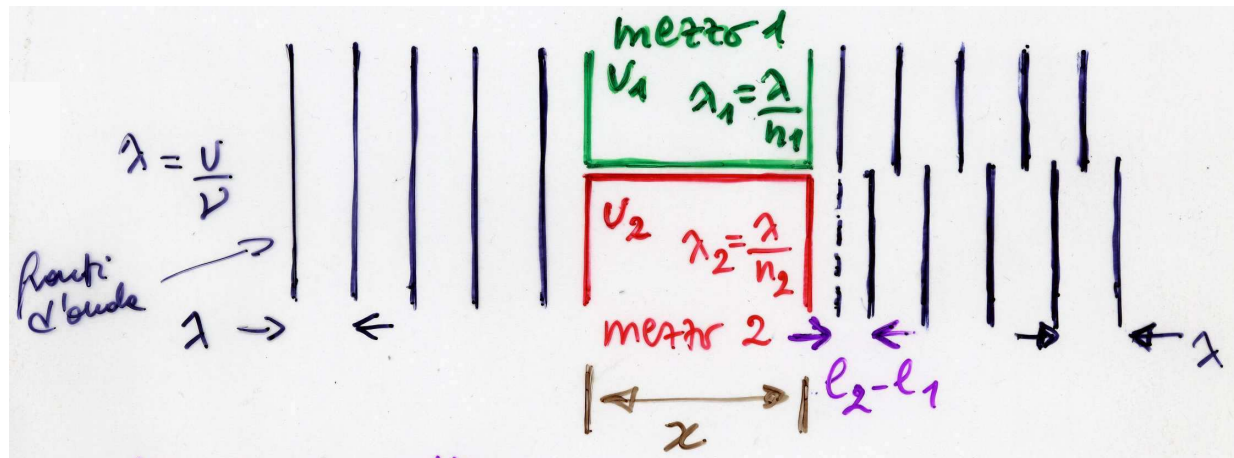 mezzo 1
v₁ λ₁ = λ/n₁
λ = v/ν
v₂ λ₂ = λ/n₂
fronti
d'onda
λ
mezzo 2
λ
l₂-l₁
x